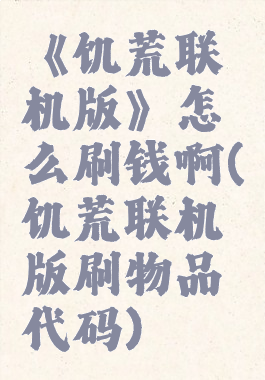 《饥荒联
机版》怎
么刷钱啊(
饥荒联机
版刷物品
代码)